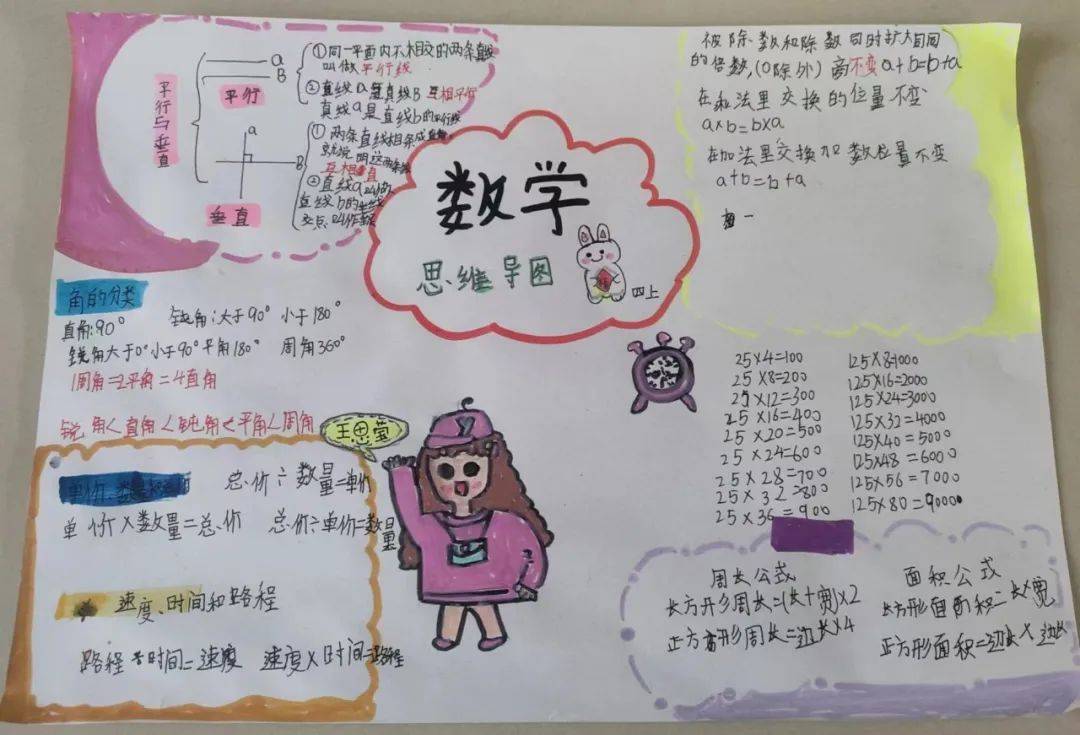 平行与垂直
a
B
平行
a
B
垂直
①同一平面内不相交的两条直线
叫做平行线
②直线a是直线B互相平行
直线a是直线b的平行线
①两条直线相条成直角
就说明这两条线
互相垂直
②直线a叫做
直线b的垂线
交点叫作垂足
数学
思维导图
四上
被除数和除数同时扩大相同
的倍数,(0除外)商不变a+b=b+a
在乘法里交换的位置不变
a×b=b×a
在加法里交换加数位置不变
a+b=b+a
角的分类
直角:90° 钝角:大于90° 小于180°
锐角大于0°小于90°平角180° 周角360°
1周角=2平角=4直角
锐角<直角<钝角<平角<周角
王思莹
单价、数量和
总价÷数量=单价
单价×数量=总价 总价÷单价=数量
速度、时间和路程
路程÷时间=速度 速度×时间=路程
25×4=100
25×8=200
25×12=300
25×16=400
25×20=500
25×24=600
25×28=700
25×32=800
25×36=900
125×8=1000
125×16=2000
125×24=3000
125×32=4000
125×40=5000
125×48=6000
125×56=7000
125×80=90000
周长公式
长方形周长=(长+宽)×2
正方形周长=边长×4
面积公式
长方形面积=长×宽
正方形面积=边长×边长